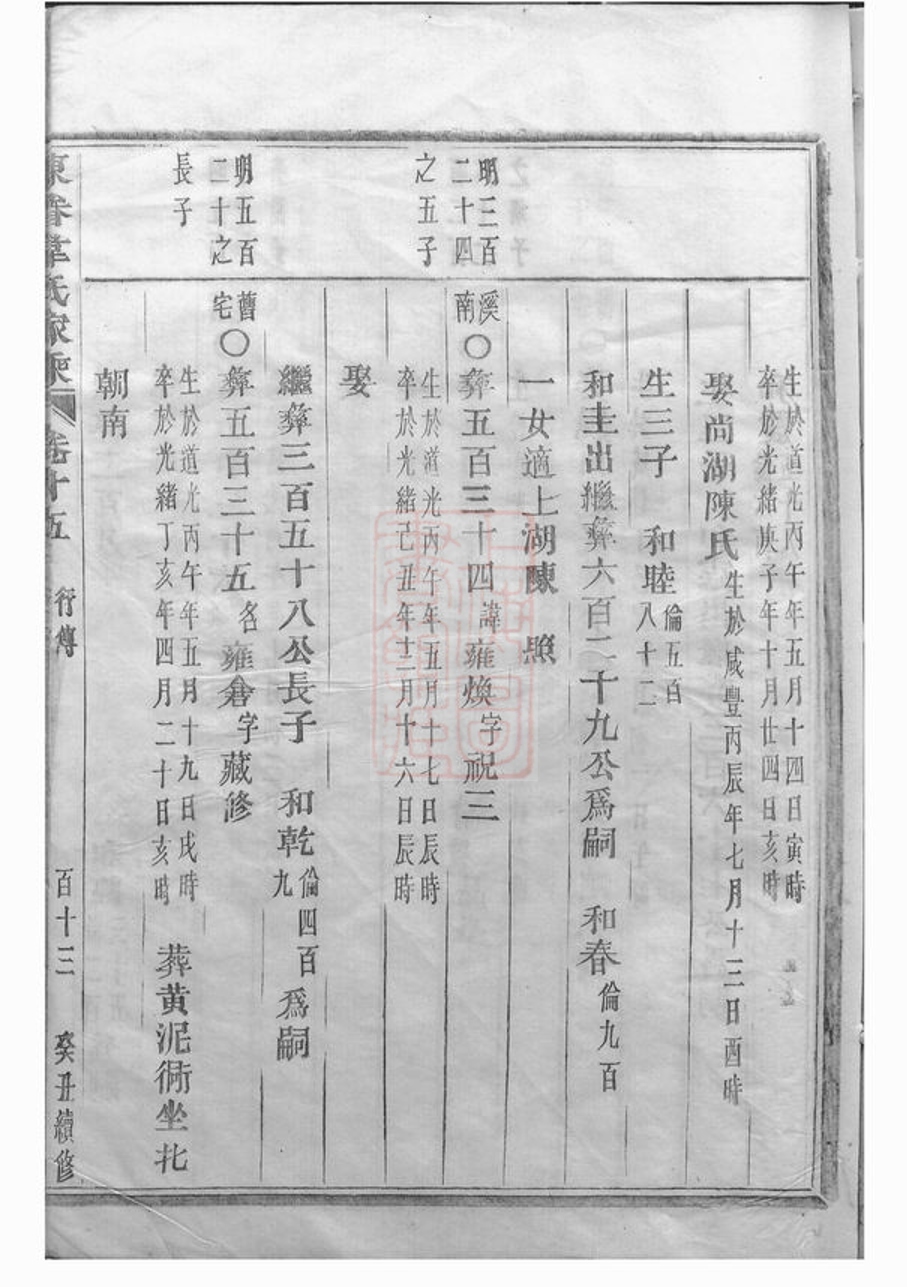 生於道光丙午年五月十四日寅時
卒於光緒庚子年十月廿四日亥時
娶尚湖陳氏 生於咸豐丙辰年七月十三日酉時
生三子 和睦 倫五百八十二
和圭出繼彜六百二十九公爲嗣 和春 倫九百
一女適上湖陳 照
明三百二十四之五子
溪南 〇彜五百三十四 諱雍煥 字祝三
生於道光丙午年五月十七日辰時
卒於光緒己丑年十二月十六日辰時
娶
繼彜三百五十八公長子 和乾 倫四百九 爲嗣
明五百二十之長子
舊宅 〇彜五百三十五 名雍倉 字藏修
生於道光丙午年五月十九日戌時
卒於光緒丁亥年四月二十日亥時 葬黄泥衕坐北
朝南
東眷韋氏家乘 卷十五 行傳 百十三 癸丑續修